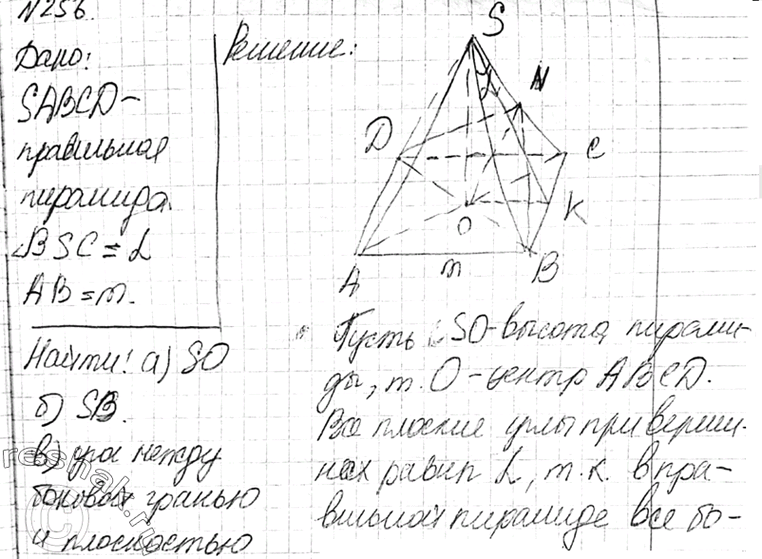 N256
Дано:
SABCD-
правильная
пирамида.
∠BSC = L
AB = m.
Найти: а) SO
б) SB.
в) угол между
боковой гранью
и плоскостью
Решение:
S
N
D
C
O
K
A
m
B
Пусть SO-высота пирами-
ды, т. O-центр ABCD.
Все плоские углы при верши-
нах равны L, т.к. в пра-
вильной пирамиде все бо-